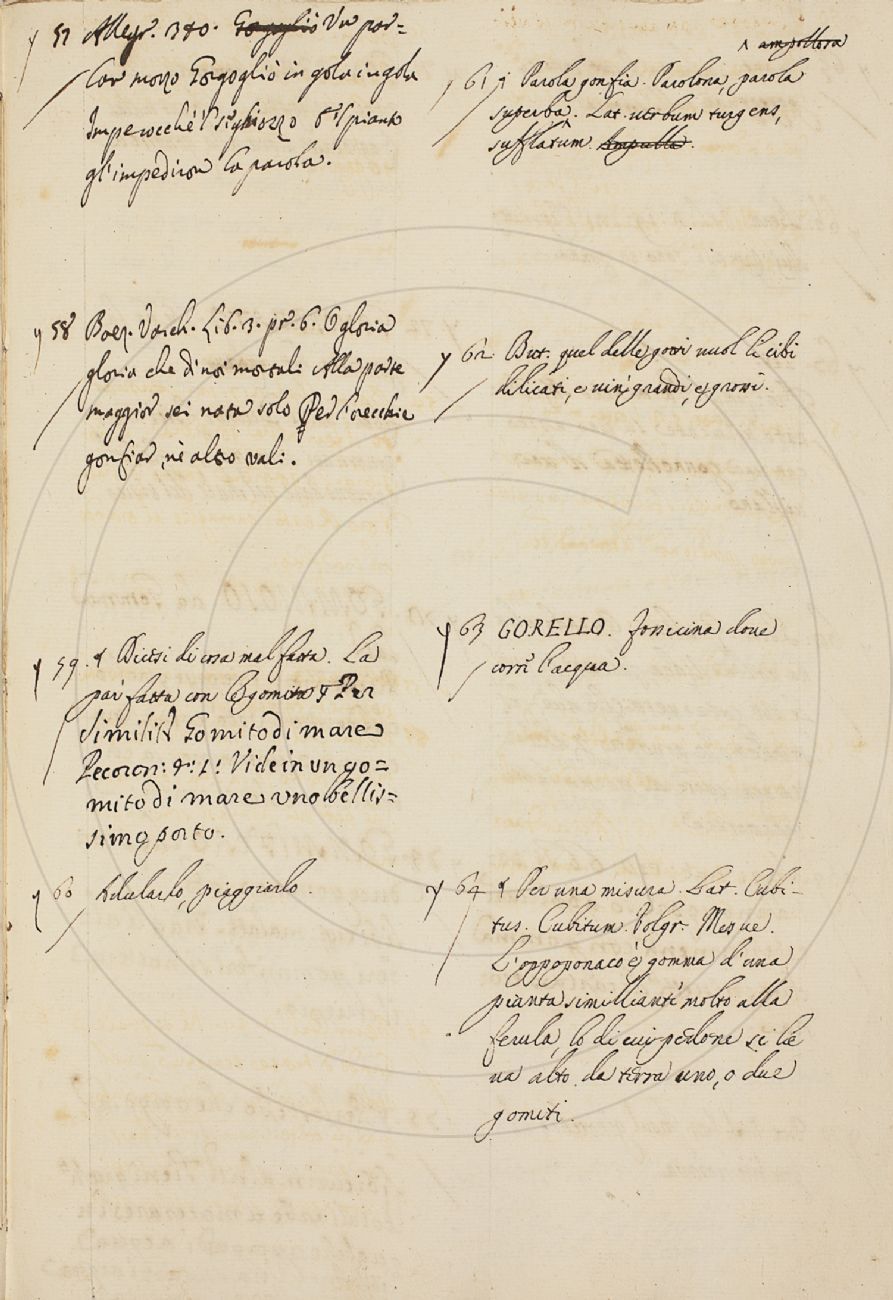 57 Allegr. 370. Gorgogliò Un par=
lar mozzo Gorgogliò in gola in gola
Imperocchè 'l sighiozzo e 'l pianto
gl'impediron la parola.
58 Boez. Varch. Lib. 3. pr. 6. O gloria
gloria che di noi mortali Alla parte
maggior sei nata solo Per l'orecchie
gonfiar, nè altro vali.
59. Dicesi di cosa mal fatta. La
par fatta con le gomita Per
similit. Gomito di mare
Pecoron: g: 1: Vide in un go=
mito di mare uno bellis=
simo porto.
60 Adularlo, piaggiarlo.
ampollosa
61 Parola gonfia. Parolona, parola
superba. Lat. verbum turgens,
sufflatum. Ampulla.
62 But. quel delle gorri vuol li cibi
dilicati, e vini grandi, e grossi.
63 GORELLO. Fossicina dove
corre l'acqua.
64 Per una misura. Lat. Cubi-
tus. Cubitum. Volgr. Mesue.
L'oppoponaco è gomma d'una
pianta simigliante molto alla
ferula, lo di cui pedone si lie
va alto da terra uno, o due
gomiti.